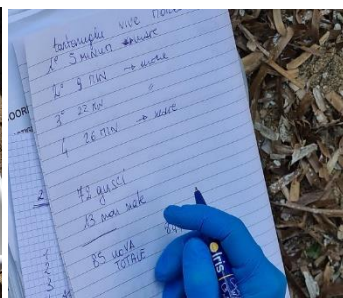 tartarughe vive
1° 5 minuti muore
2° 9 MIN → muore
3° 22 MIN "
4 26 MIN → muore
72 gusci
13 non nate
85 UOVA
TOTALE
OORI
2
Iris